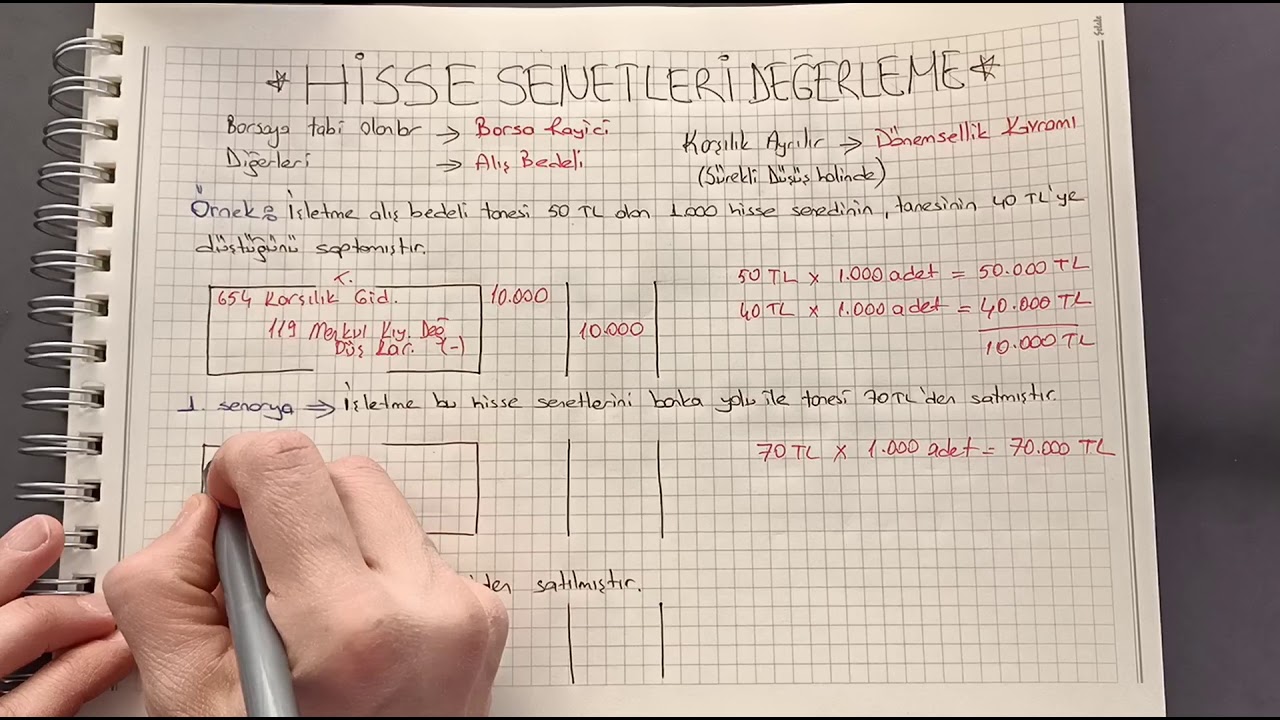 * HİSSE SENETLERİ DEĞERLEME *
Borsaya tabi olanlar → Borsa Rayici
Diğerleri → Alış Bedeli
Karşılık Ayrılır → Dönemsellik Kavramı
(Sürekli Düşüş halinde)
Örnek: İşletme alış bedeli tanesi 50 TL olan 1.000 hisse senedinin, tanesinin 40 TL'ye
düştüğünü saptamıştır.
654 Karşılık Gid. 10.000
119 Menkul Kıy. Değ 10.000
Düş Kar. (-)
50 TL x 1.000 adet = 50.000 TL
40 TL x 1.000 adet = 40.000 TL
10.000 TL
1. senarya ⇒ İşletme bu hisse senetlerini banka yolu ile tanesi 70 TL'den satmıştır.
70 TL x 1.000 adet = 70.000 TL
'den satılmıştır.